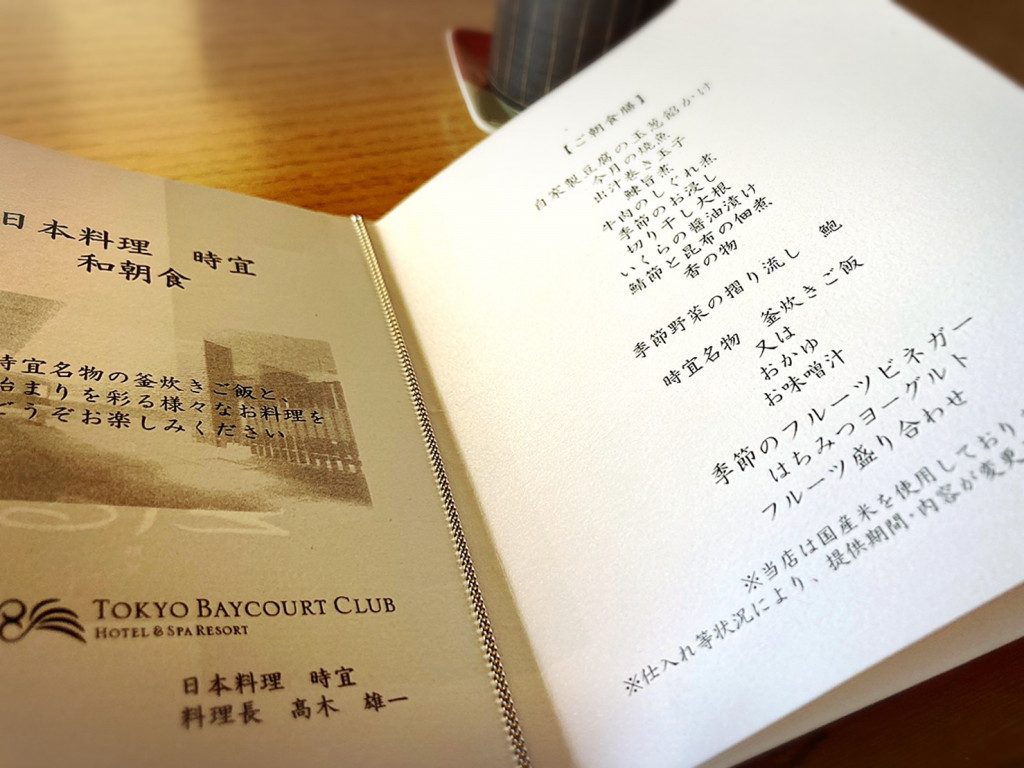 日本料理 時宜
和朝食
時宜名物の釜炊きご飯と、
始まりを彩る様々なお料理を
どうぞお楽しみください
TOKYO BAYCOURT CLUB
HOTEL & SPA RESORT
日本料理 時宜
料理長 髙木 雄一
【ご朝食膳】
自家製豆腐の玉葱餡かけ
今月の焼魚
出汁巻き玉子
鰊旨煮
牛肉のしぐれ煮
季節のお浸し
切り干し大根
いくらの醤油漬け
鯖節と昆布の佃煮
香の物
季節野菜の摺り流し 鮑
時宜名物 釜炊きご飯
又は
おかゆ
お味噌汁
季節のフルーツビネガー
はちみつヨーグルト
フルーツ盛り合わせ
※当店は国産米を使用しており
※仕入れ等状況により、提供期間・内容が変更